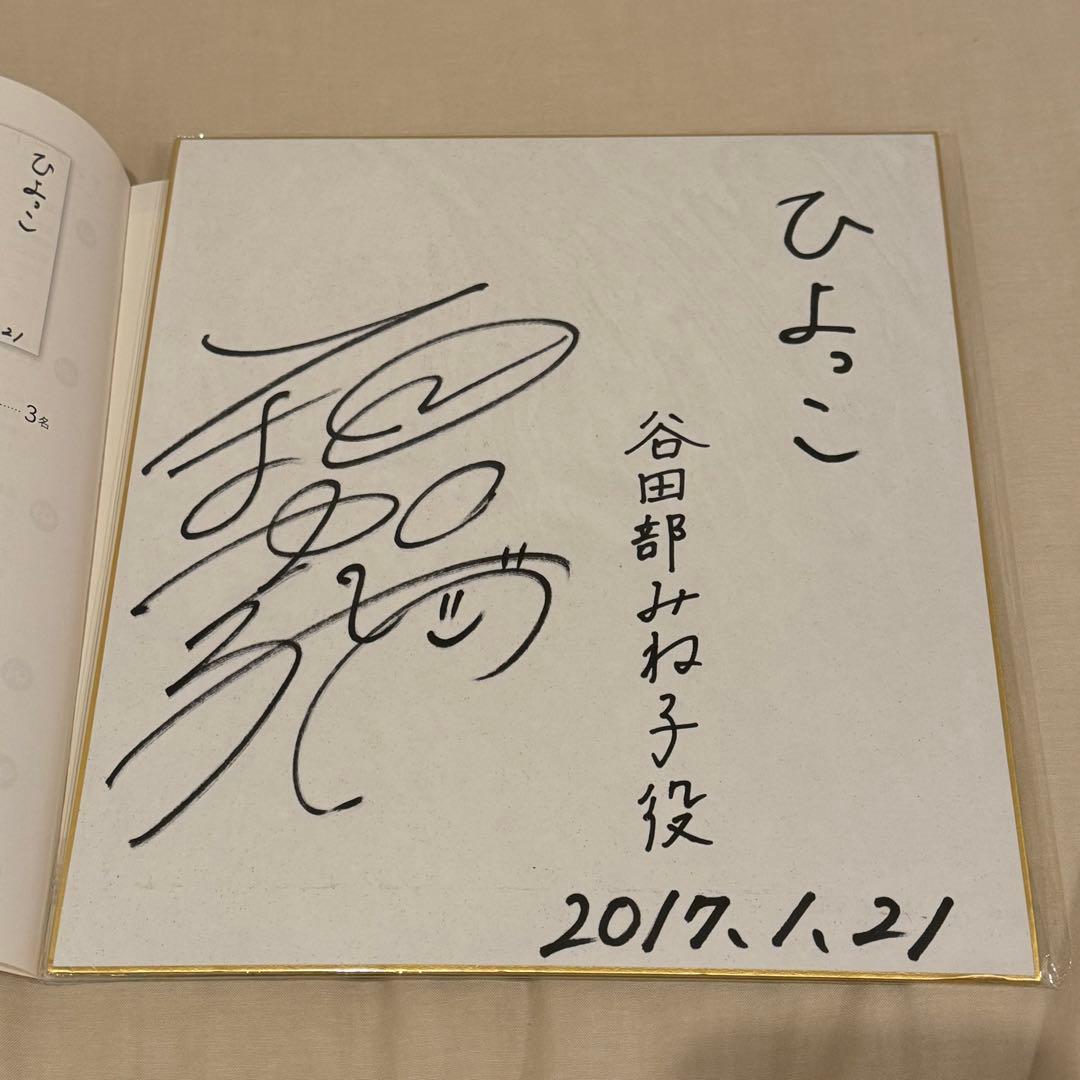 ひよっこ
谷田部みね子役
2017.1.21
ひよっこ
21
……3名